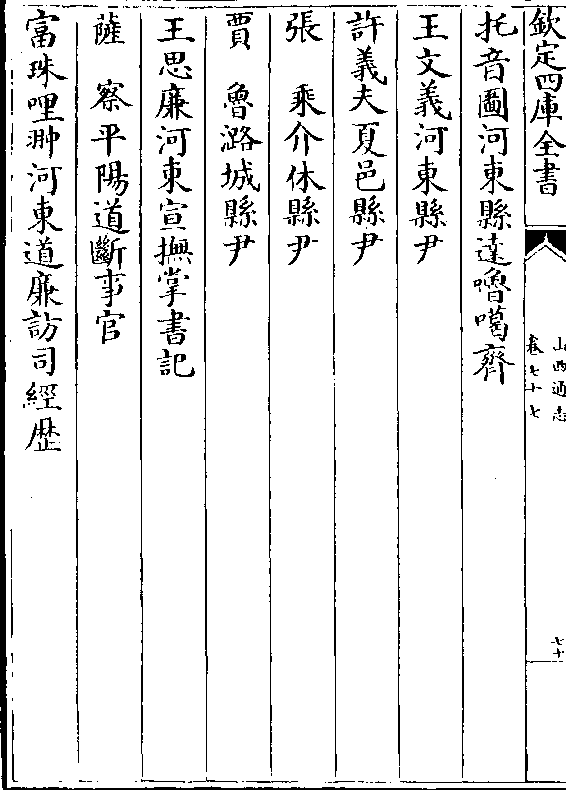 欽定四庫全書
山西通志
卷七十七
七十
托音圖河東縣達嚕噶齊
王文義河東縣尹
許義夫夏邑縣尹
張　乘介休縣尹
賈　魯潞城縣尹
王思廉河東宣撫掌書記
薩　察平陽道斷事官
富珠哩翀河東道廉訪司經歴